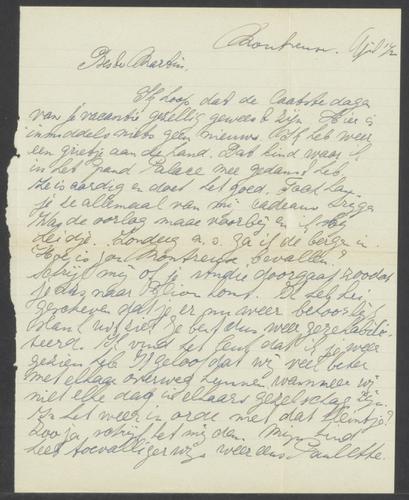 Montreux. April
Beste Martin.
Ik hoop dat de laatste dagen
van je vacantie gezellig geweest zijn. Hier is
inmiddels niets geen nieuws. Ik heb weer
een grietje aan de hand. Dat kind waar ik
in het Grand Palace mee gedanst heb.
Ze is aardig en doet het goed.
je ze allemaal van mij cadeau
Was de oorlog maar voorbij
Zondag a.s. ga ik de bergen in
Hoe is jou Montreux bevallen?
Schrijf mij of je studie doorgaat zoodat
je dus naar komt. Ik heb hen
geschreven dat je er nu weer behoorlijk
uitziet. Je bent dus weer gerehabili-
teerd. Ik vind het leuk dat ik je weer
gezien heb. Ik geloof dat wij veel beter
met elkaar overweg kunnen wanneer wij
niet elke dag in elkaars gezelschap zijn.
Is het weer in orde met dat kleintje?
Zoo ja, schrijf het mij dan.
toevalligerwijs weer eens Paulette.